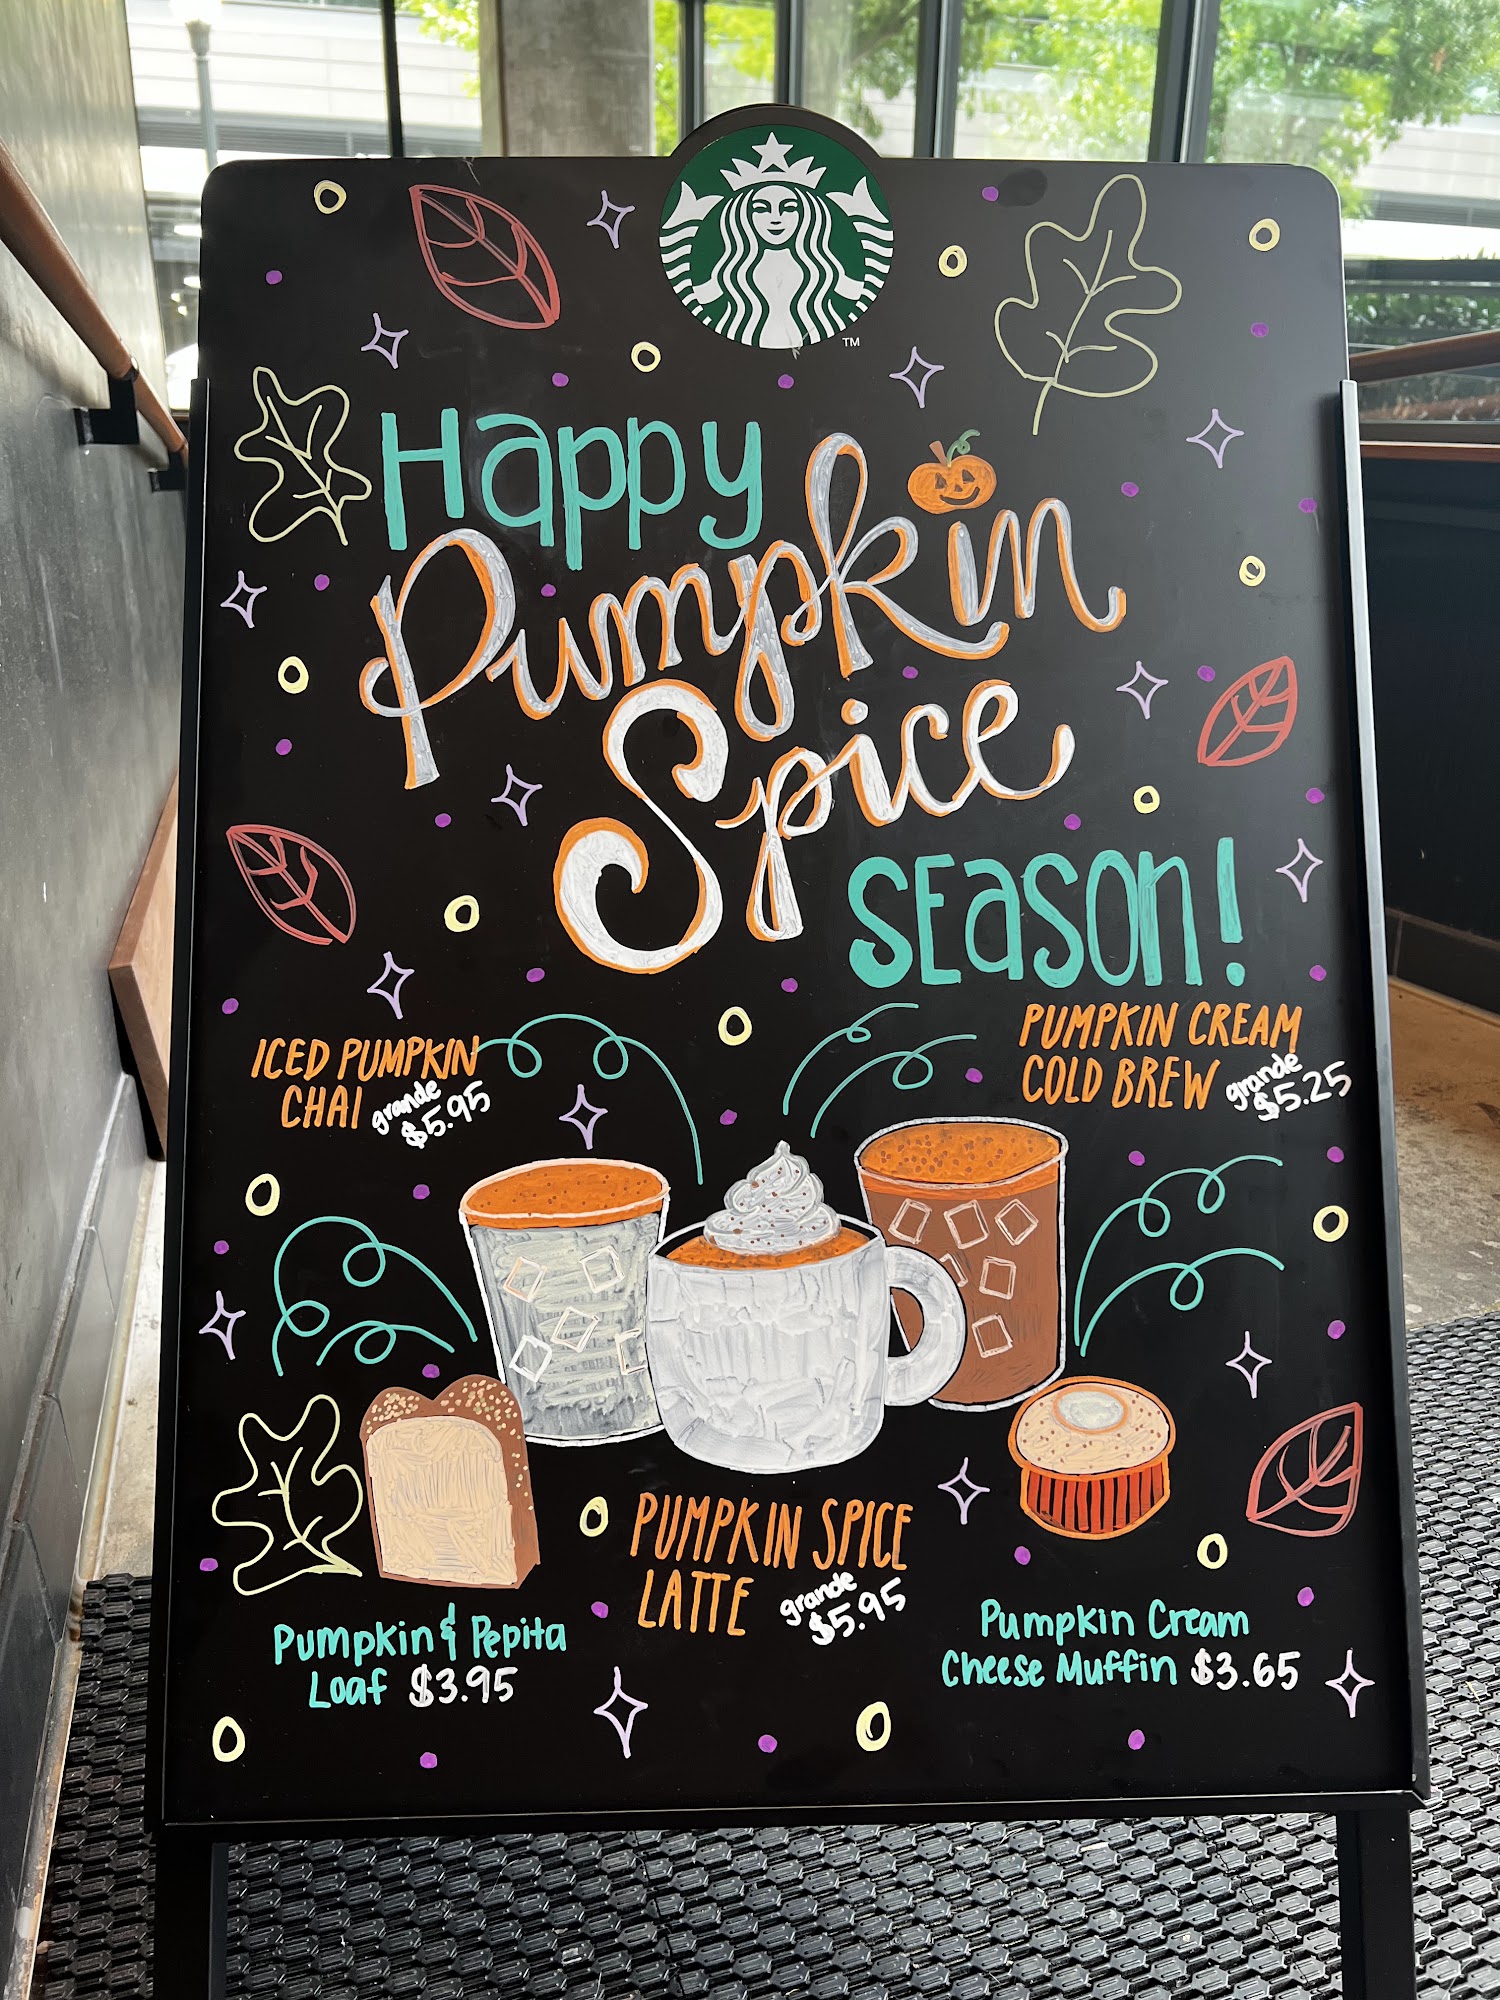 TM
Happy
Pumpkin
Spice
SEASON!
ICED PUMPKIN
CHAI grande
$5.95
PUMPKIN CREAM
COLD BREW grande
$5.25
PUMPKIN SPICE
LATTE grande
$5.95
Pumpkin & Pepita
Loaf $3.95
Pumpkin Cream
Cheese Muffin $3.65